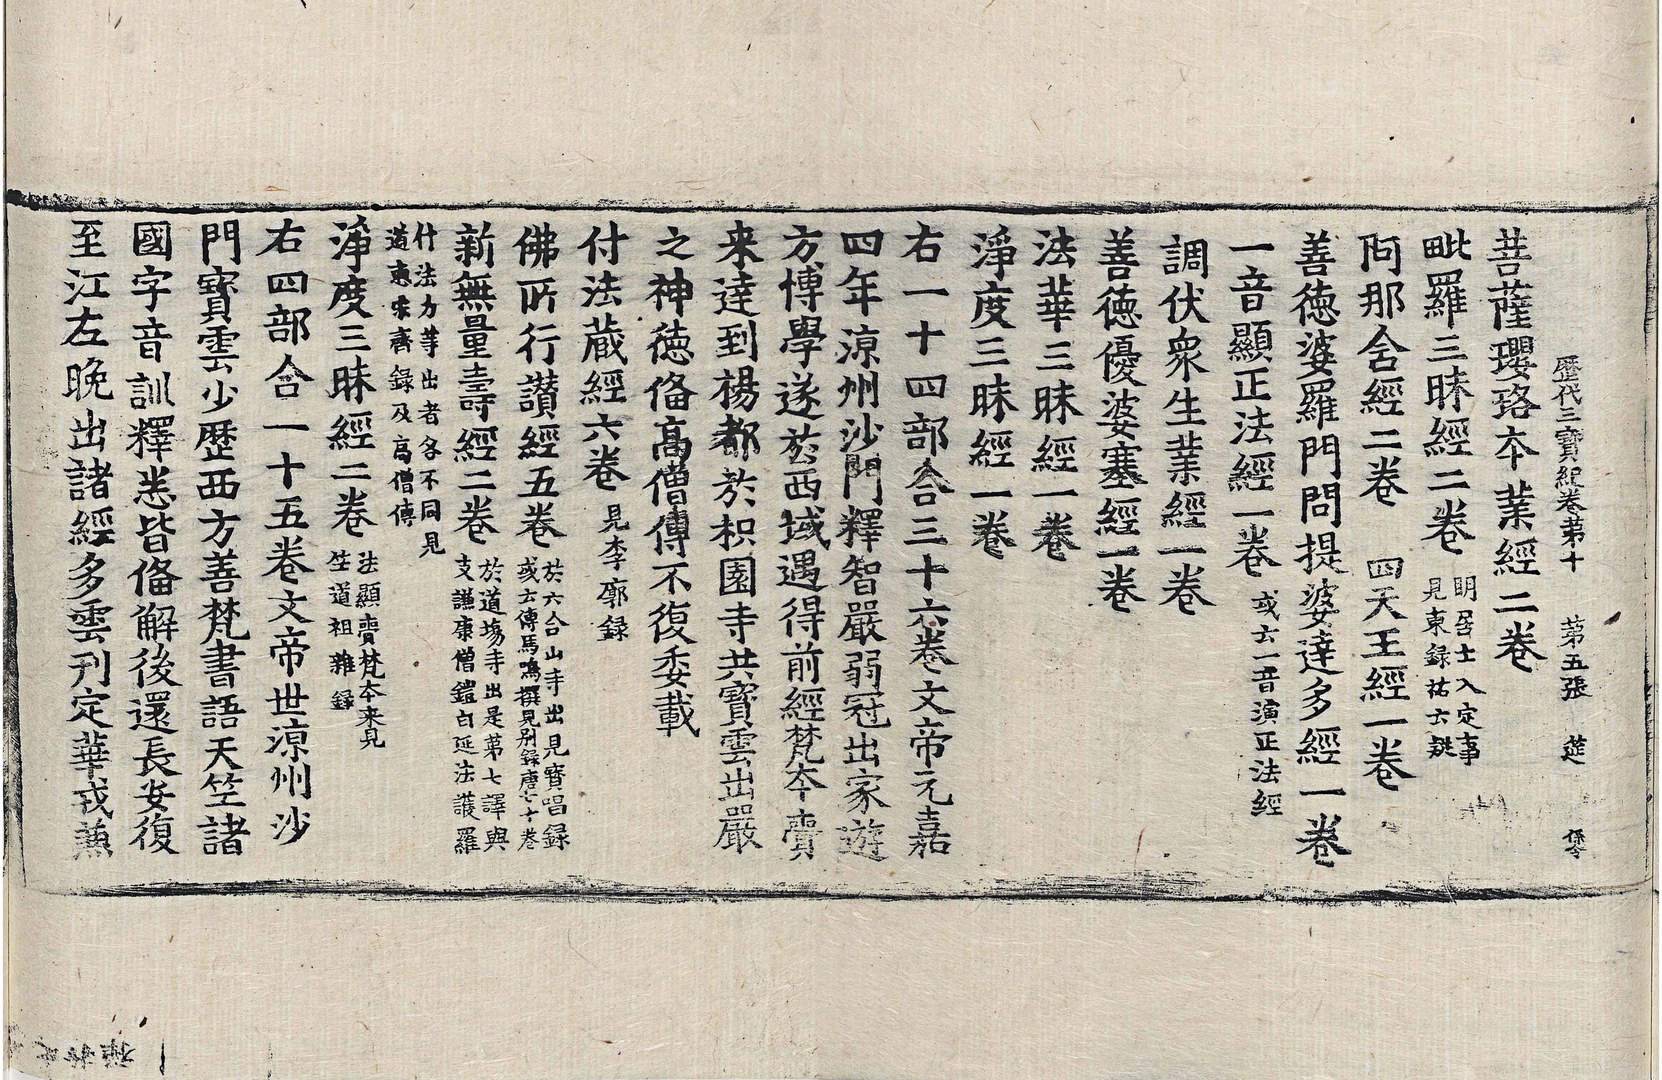 歷代三寶紀卷第十 第五張 筵
菩薩瓔珞本業經二卷
毗羅三昧經二卷 明居士入定事見東録祐云疑
阿那含經二卷 四天王經一卷
善德婆羅門問提婆達多經一卷
一音顯正法經一卷 或云一音演正法經
調伏衆生業經一卷
善德優婆塞經一卷
法華三昧經一卷
淨度三昧經一卷
右一十四部合三十六卷文帝元嘉
四年涼州沙門釋智嚴弱冠出家遊
方博學遂於西域遇得前經梵本賷
来達到楊都於枳園寺共寶雲出嚴
之神德俻髙僧傳不復委載
付法藏經六卷 見李廓録
佛所行讃經五卷 於六合山寺出見寶唱録或云傳馬鳴撰見別録唐七十卷
新無量壽經二卷 於道塲寺出是第七譯與支謙康僧鎧白延法護羅
什法力等出者各不同見道惠宋齊録及高僧傳
淨度三昧經二卷 法顯賷梵本来見竺道祖雜録
右四部合一十五卷文帝世涼州沙
門寶雲少歷西方善梵書語天竺諸
國字音訓釋悉皆俻解後還長安復
至江左晚出諸經多雲刊定華戎兼